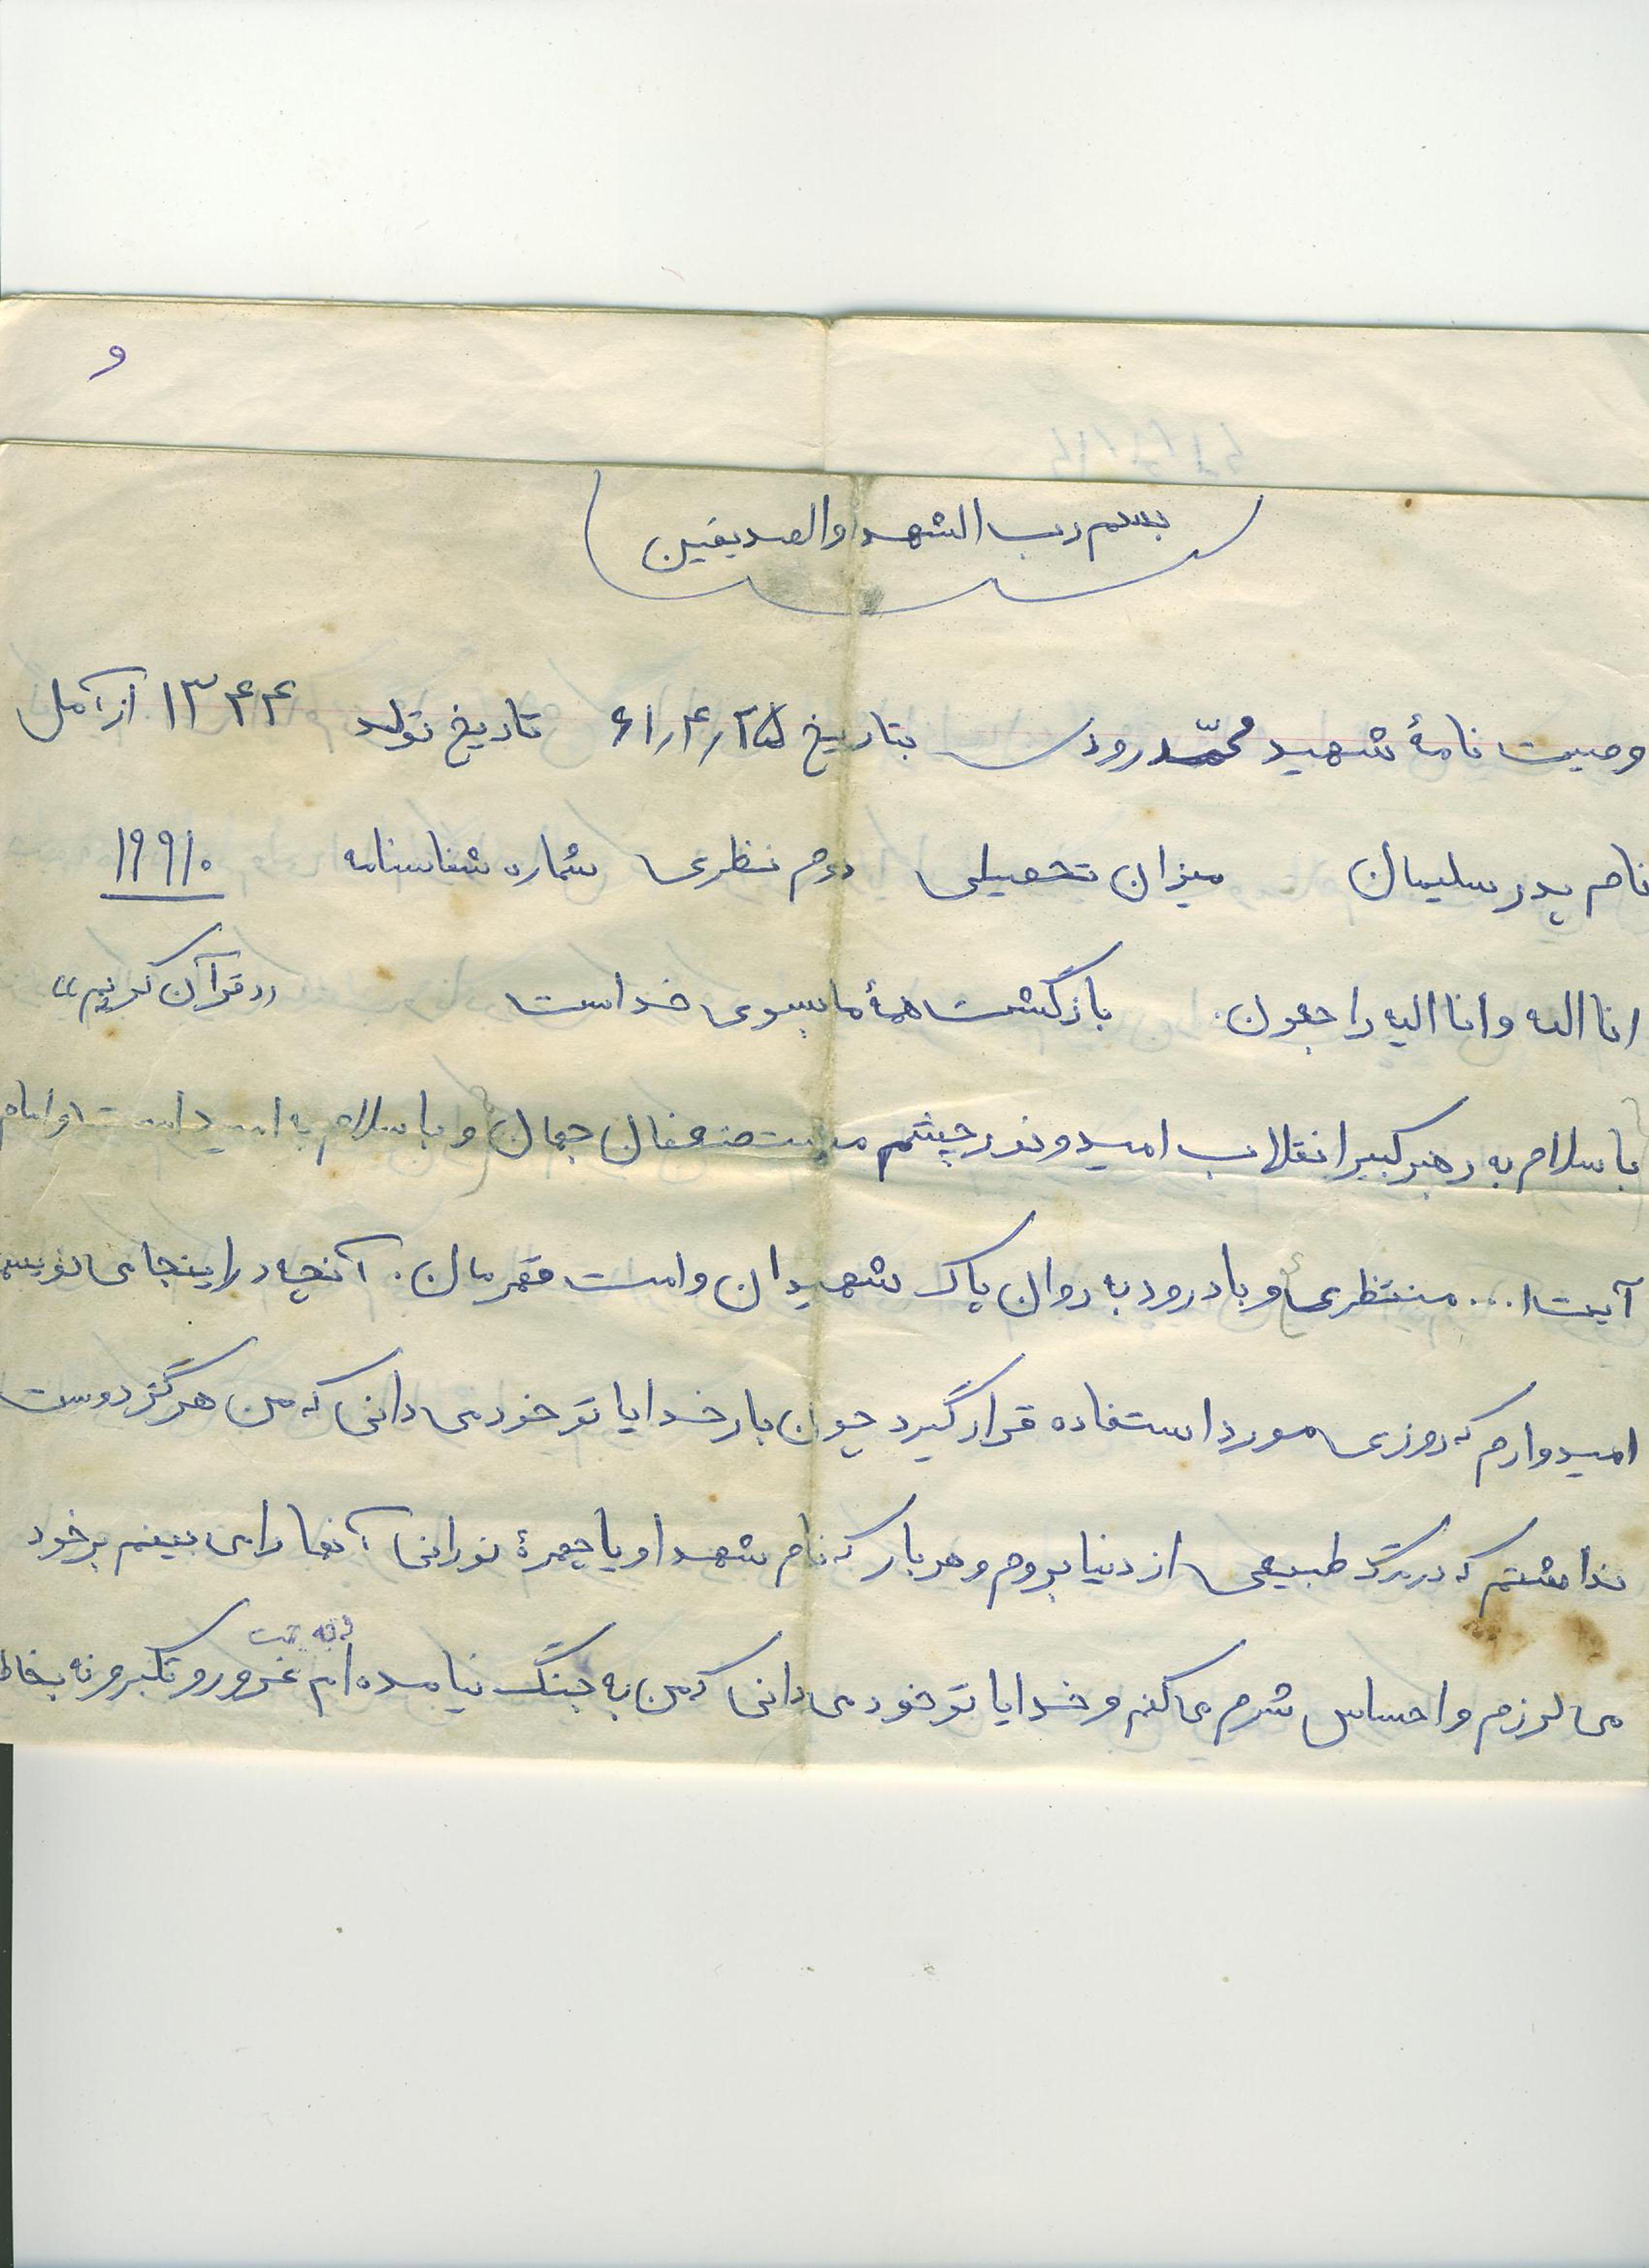 و
بسم رب الشهدا والصدیقین
وصیت نامهٔ شهید محمّد رودی بتاریخ ۶۱٫۴٫۲۵ تاریخ تولد ۱۳۴۴ از آمل
نام پدر سلیمان میزان تحصیلی دوم نظری شماره شناسنامه ۱۹۹۱۰
انا الله وانا الیه راجعون. بازگشت همهٔ ما بسوی خداست «قرآن کریم»
با سلام به رهبر کبیر انقلاب امید و نور چشم مستضعفان جهان و با سلام به امید امت و امام
آیت ا... منتظری و با درود به روان پاک شهیدان و امت قهرمان. آنچه در اینجا می نویسم
امیدوارم که روزی مورد استفاده قرار گیرد چون بار خدایا تو خود می دانی که من هرگز دوست
نداشتم که در مرگ طبیعی از دنیا بروم و هر بار که نام شهدا و یا چهرهٔ نورانی آنها را می بینم بر خود
می لرزم و احساس شرم می کنم و خدایا تو خود می دانی که من به جنگ نیامده ام غرور و تکبر و نه بخاطر